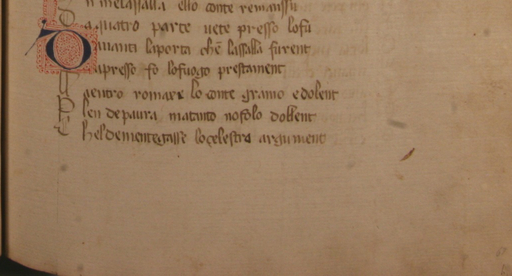 n melassalla ello conte remanssu
a quatro parte uete presso lo fu
Dauanti la porta che lassalla furent
apresso fo lo fuogo prestament
Dentro romaxe lo conte gramo e dolent
Plen de paura ma tuto no fo lo dolent
Chel dementegasse lo celestro argument